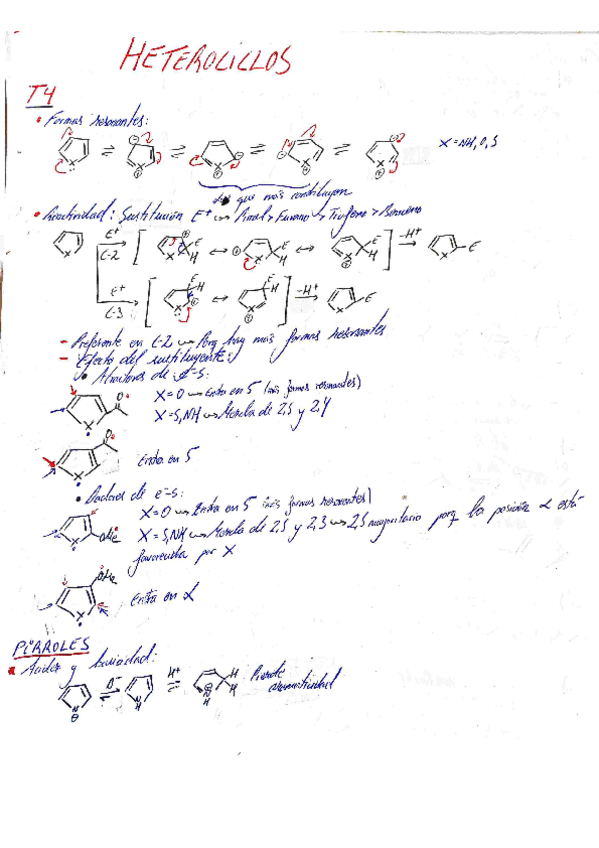 HETEROCICLOS
T4
• Formas resonantes:
X = NH, O, S
Los que más contribuyen
• Reactividad: Sustitución E+ → Pirrol > Furano > Tiofeno > Benceno
E+
C-2
E
H
E
H
E
H
-H+
E
E+
C-3
E
H
E
H
-H+
E
- Preferente en C-2 → Porq hay más formas resonantes
- Efecto del sustituyente:
• Atractores de e-s:
X = O → Entra en 5 (más formas resonantes)
X = S, NH → Mezcla de 2,5 y 2,4
Entra en 5
• Dadores de e-s:
X = O → Entra en 5 (más formas resonantes)
OMe
X = S, NH → Mezcla de 2,5 y 2,3 → 2,5 mayoritario porq la posición α está
favorecida por X
OMe
Entra en α
PIRROLES
• Acidez y basicidad:
B-
H+
H
H
Pierde
aromaticidad
N
N
H
N
H